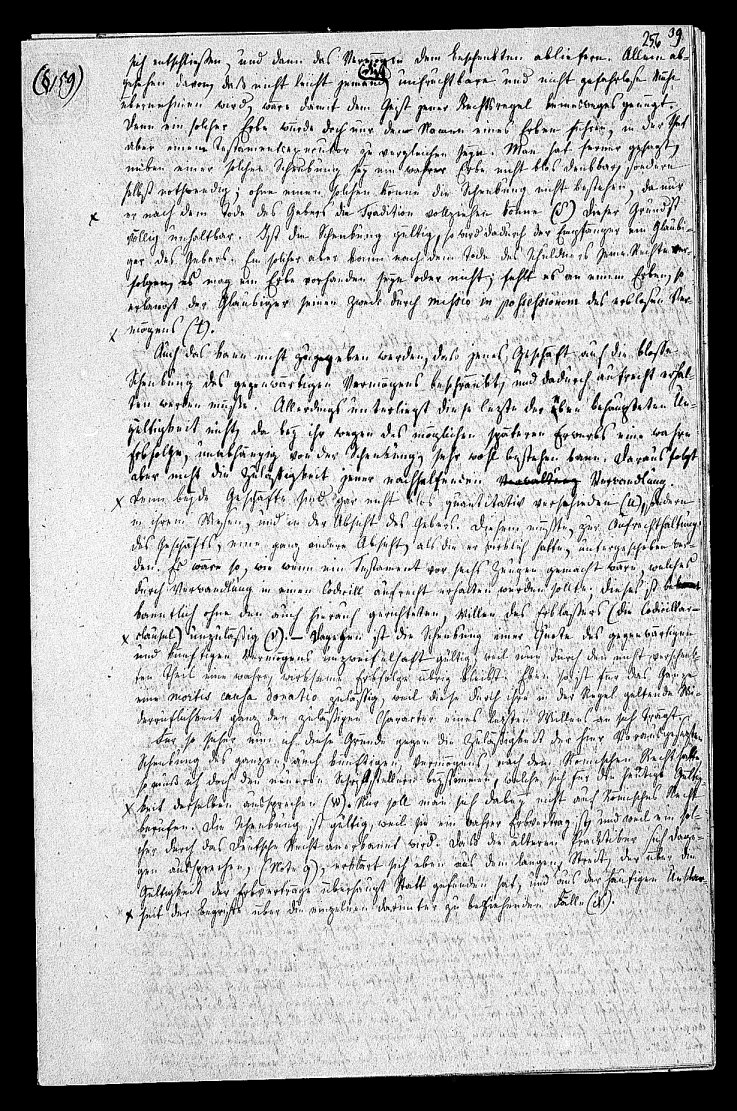 256 39
(8/59)
sich entschließen, und dann das Vermögen dem Beschenkten abliefern. Allein ab-
gesehen davon, daß nicht leicht jemand diese unfruchtbare und nicht gefahrlose Mühe
übernehmen wird, wäre damit dem Geist jener Rechtsregel keineswegs genügt.
Denn ein solcher Erbe würde doch nur den Namen eines Erben führen, in der That
aber einem Testamentsexecutor zu vergleichen seyn. Man hat ferner gesagt,
neben einer solchen Schenkung sey ein wahrer Erbe nicht blos denkbar, sondern
selbst nothwendig; ohne einen solchen könne die Schenkung nicht bestehen, da nur
x er nach dem Tode des Gebers die Tradition vollziehen könne (s) Dieser Grund ist
völlig unhaltbar. Ist die Schenkung gültig, so wird dadurch der Empfänger ein Gläubi-
ger des Gebers. Ein solcher aber kann nach dem Tode des Schuldners seine Rechte ver-
folgen, es mag ein Erbe vorhanden seyn oder nicht; fehlt es an einem Erben, so
erlangt der Gläubiger seinen Zweck durch missio in possessionem des erblosen Ver-
x mögens (t).
Auch das kann nicht zugegeben werden, daß jenes Geschäft auf die bloße
Schenkung des gegenwärtigen Vermögens beschränkt, und dadurch aufrecht erhal-
ten werden müsse. Allerdings unterliegt diese letzte der oben behaupteten Un-
gültigkeit nicht, da bey ihr wegen des möglichen späteren Erwerbs eine wahre
Erbfolge, unabhängig von der Schenkung, sehr wohl bestehen kann. Daraus folgt
aber nicht die Zulässigkeit jener nachhelfenden Verwaltung Verwandlung.
x Denn beide Geschäfte sind gar nicht blos quantitativ verschieden (u), sondern
in ihrem Wesen, und in der Absicht des Gebers. Diesem müßte, zur Aufrechthaltung
des Geschäfts, eine ganz andere Absicht, als die er wirklich hatte, untergeschoben wer-
den. Es wäre so, wie wenn ein Testament vor sechs Zeugen gemacht wäre, welches
durch Verwandlung in einen Codicill aufrecht erhalten werden sollte; dieses ist be-
kanntlich ohne den auch hierauf gerichteten Willen des Erblassers (die Codicillar-
x clausel) unzulässig (v). — Dagegen ist die Schenkung einer Quote des gegenwärtigen
und künftigen Vermögens unzweifelhaft gültig, weil nun durch den nicht verschenk-
ten Theil eine wahre, wirksame Erbfolge übrig bleibt. Eben so ist für das Ganze
eine mortis causa donatio zulässig, weil diese durch ihre in der Regel geltende Wi-
derruflichkeit ganz den zulässigen Character eines letzten Willens an sich trägt.
So sehr nun ich diese Gründe gegen die Zulässigkeit der hier vorausgesetzten
Schenkung des ganzen auch künftigen Vermögens nach dem Römischen Recht halte,
so muß ich doch den neueren Schriftstellern beystimmen, welche sich für die heutige Gültig-
x keit derselben aussprechen (w). Nur soll man sich dabey nicht auf Römisches Recht
berufen. Die Schenkung ist gültig, weil sie ein wahrer Erbvertrag ist, und weil ein sol-
cher durch das Deutsche Recht anerkannt wird. Daß die älteren Practiker sich dage-
gen aussprechen, (Note q), erklärt sich eben aus dem langen Streit, der über die
Gültigkeit der Erbverträge überhaupt Statt gefunden hat, und aus der häufigen Unklar-
x heit der Begriffe über die einzelnen darunter zu beziehenden Fälle (x).